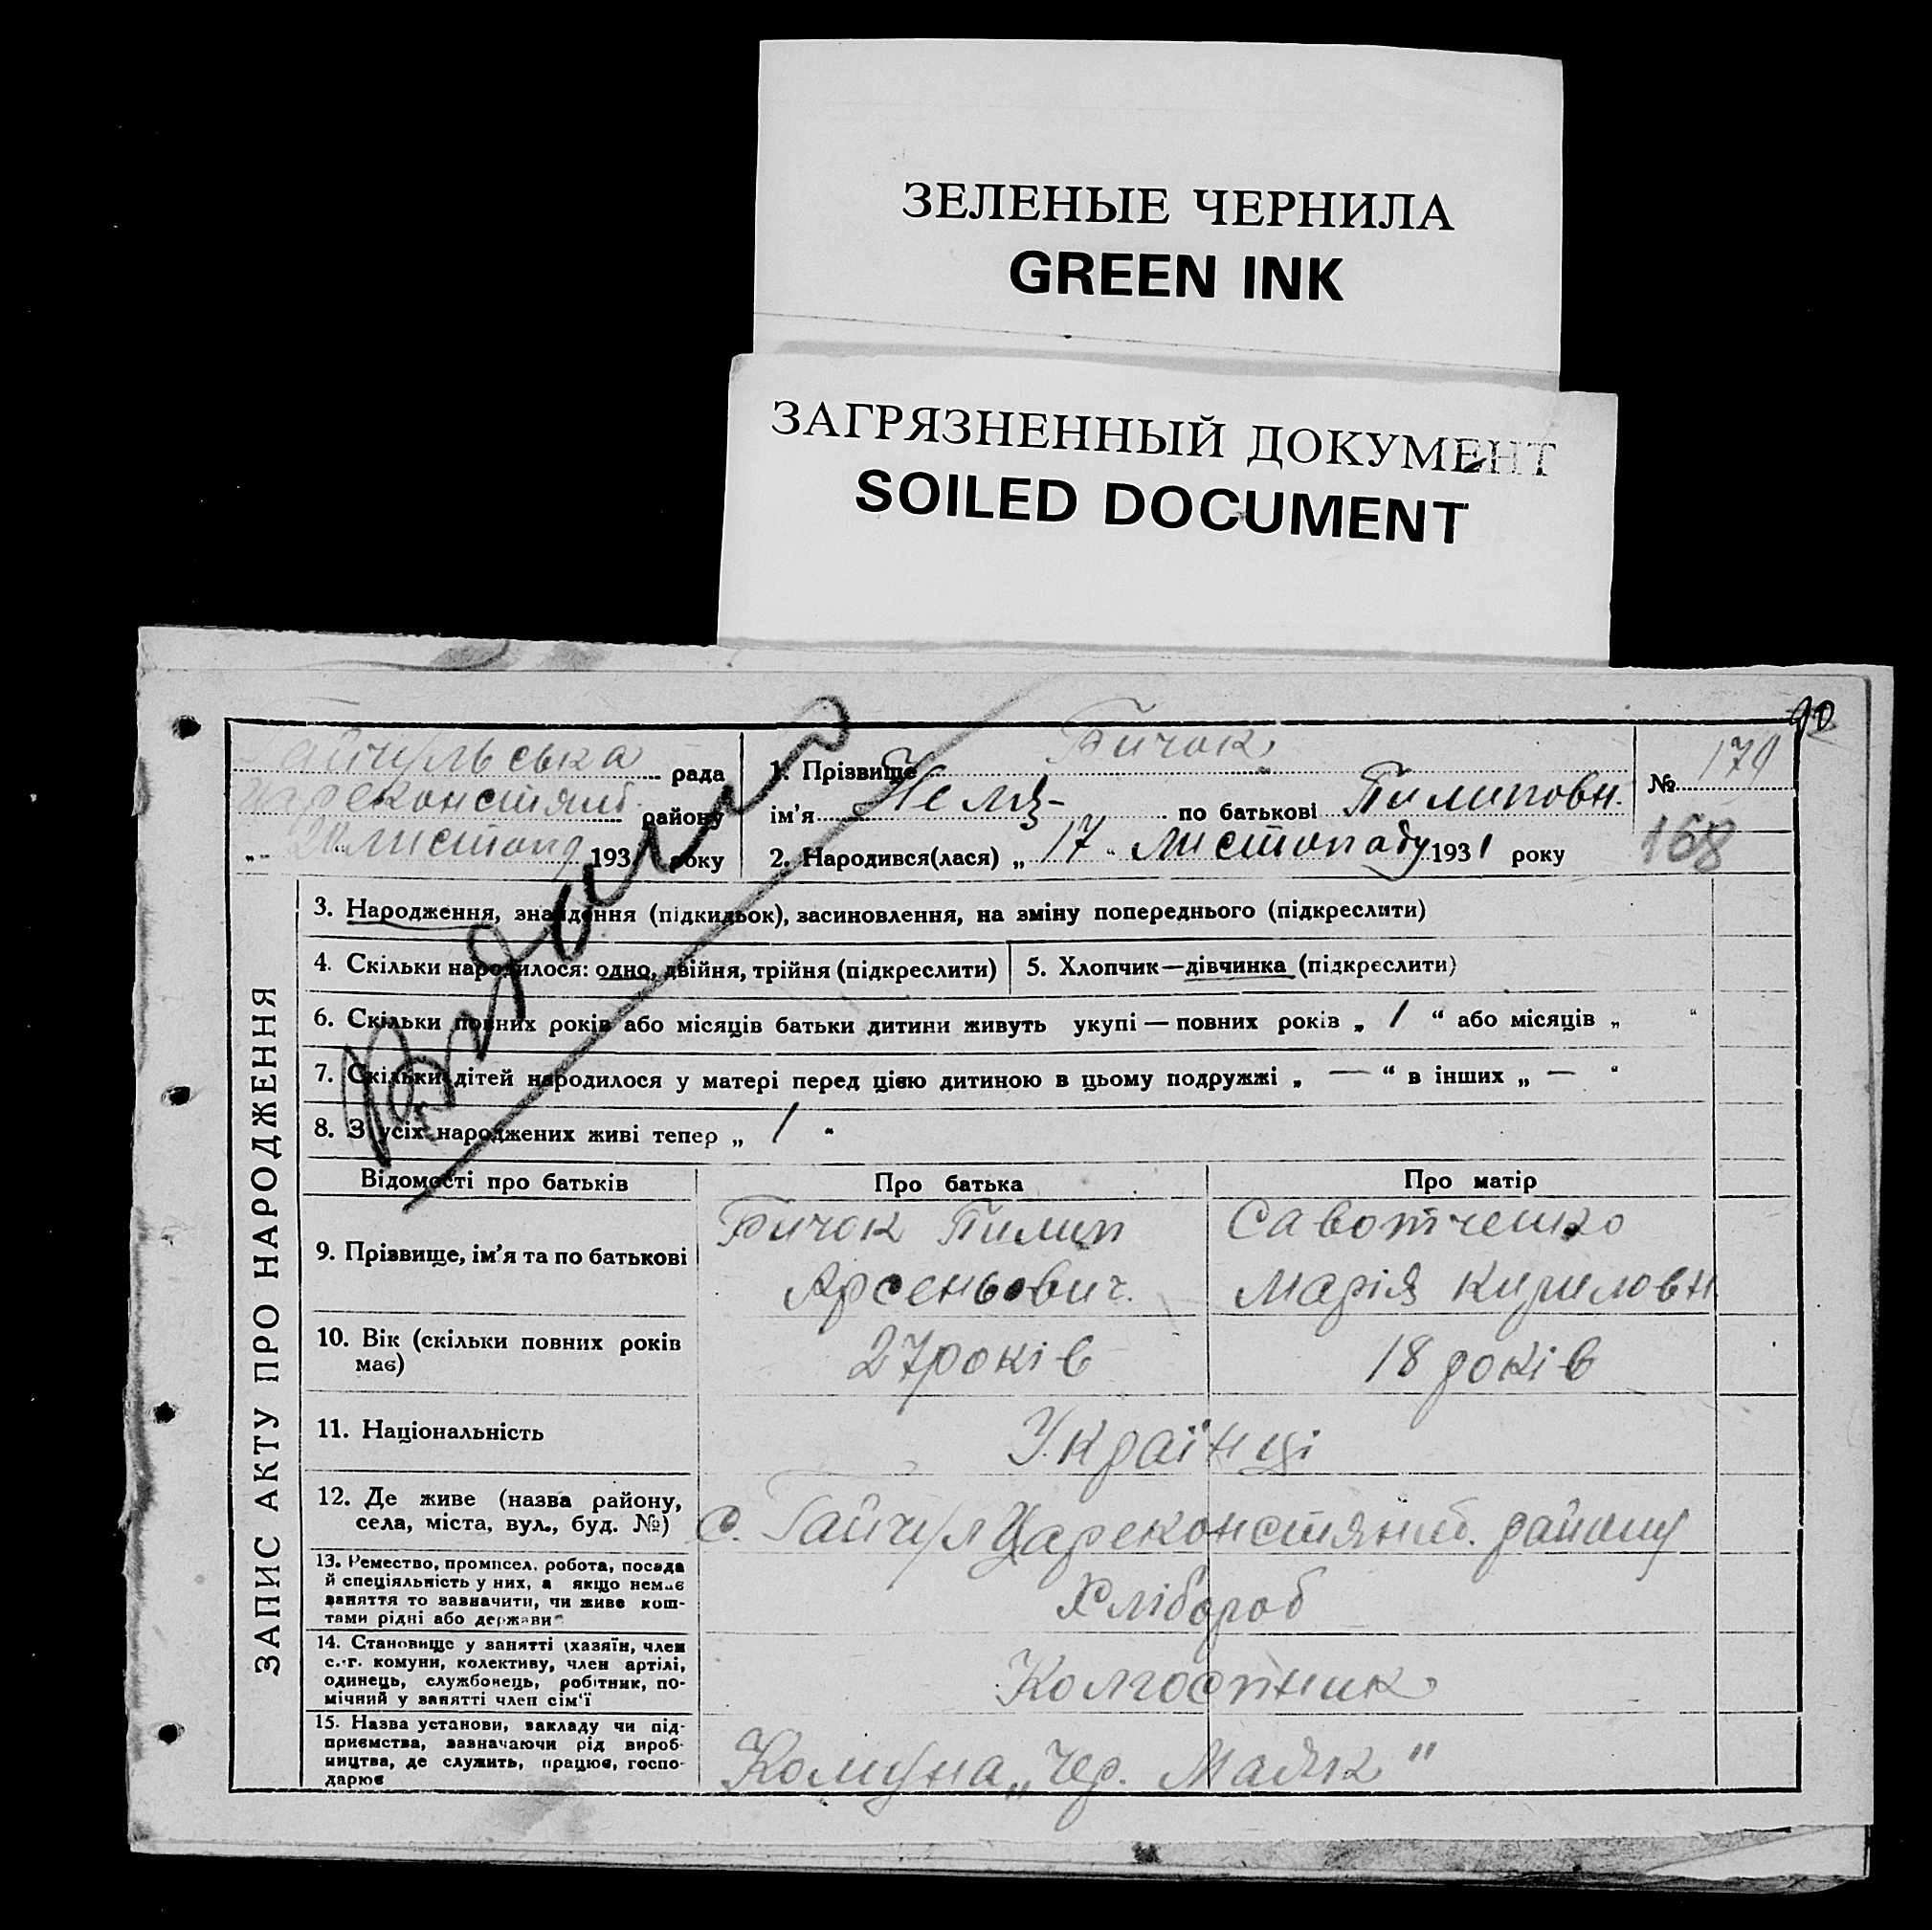 ЗЕЛЕНЫЕ ЧЕРНИЛА
GREEN INK
ЗАГРЯЗНЕННЫЙ ДОКУМЕНТ
SOILED DOCUMENT
90
Гайчульська рада
Цареконстянт. району
„ 20 " листопад 1931 року
Видано
1. Прізвище Бичок
ім'я по батькові Пилиповн.
2. Народився(лася) „ 17 " листопаду 1931 року
№ 179
168
ЗАПИС АКТУ ПРО НАРОДЖЕННЯ
3. Народження, знайдення (підкидьок), засиновлення, на зміну попереднього (підкреслити)
4. Скільки народилося: одно, двійня, трійня (підкреслити)
5. Хлопчик—дівчинка (підкреслити)
6. Скільки повних років або місяців батьки дитини живуть укупі — повних років „ 1 " або місяців „ "
7. Скільки дітей народилося у матері перед цією дитиною в цьому подружжі „ — " в інших „ — "
8. З усіх народжених живі тепер „ 1 "
Відомості про батьків Про батька Про матір
9. Прізвище, ім'я та по батькові
Бичок Пилип
Арсеньович.
Савотченко
Марія Кириловн
10. Вік (скільки повних років
має)
27 років
18 років
11. Національність
Українці
12. Де живе (назва району,
села, міста, вул., буд. №)
с. Гайчул Цареконстянт. району
13. Ремество, промисел, робота, посада
й спеціяльність у них, а якщо немає
заняття то зазначити, чи живе кош-
тами рідні або держави
Хлібороб
14. Становище у занятті (хазяїн, член
с.-г. комуни, колективу, член артілі,
одинець, службовець, робітник, по-
мічний у занятті член сім'ї
Колгоспник
15. Назва установи, закладу чи під-
приємства, зазначаючи рід вироб-
ництва, де служить, працює, госпо-
дарює
Комуна „Чер. Маяк"